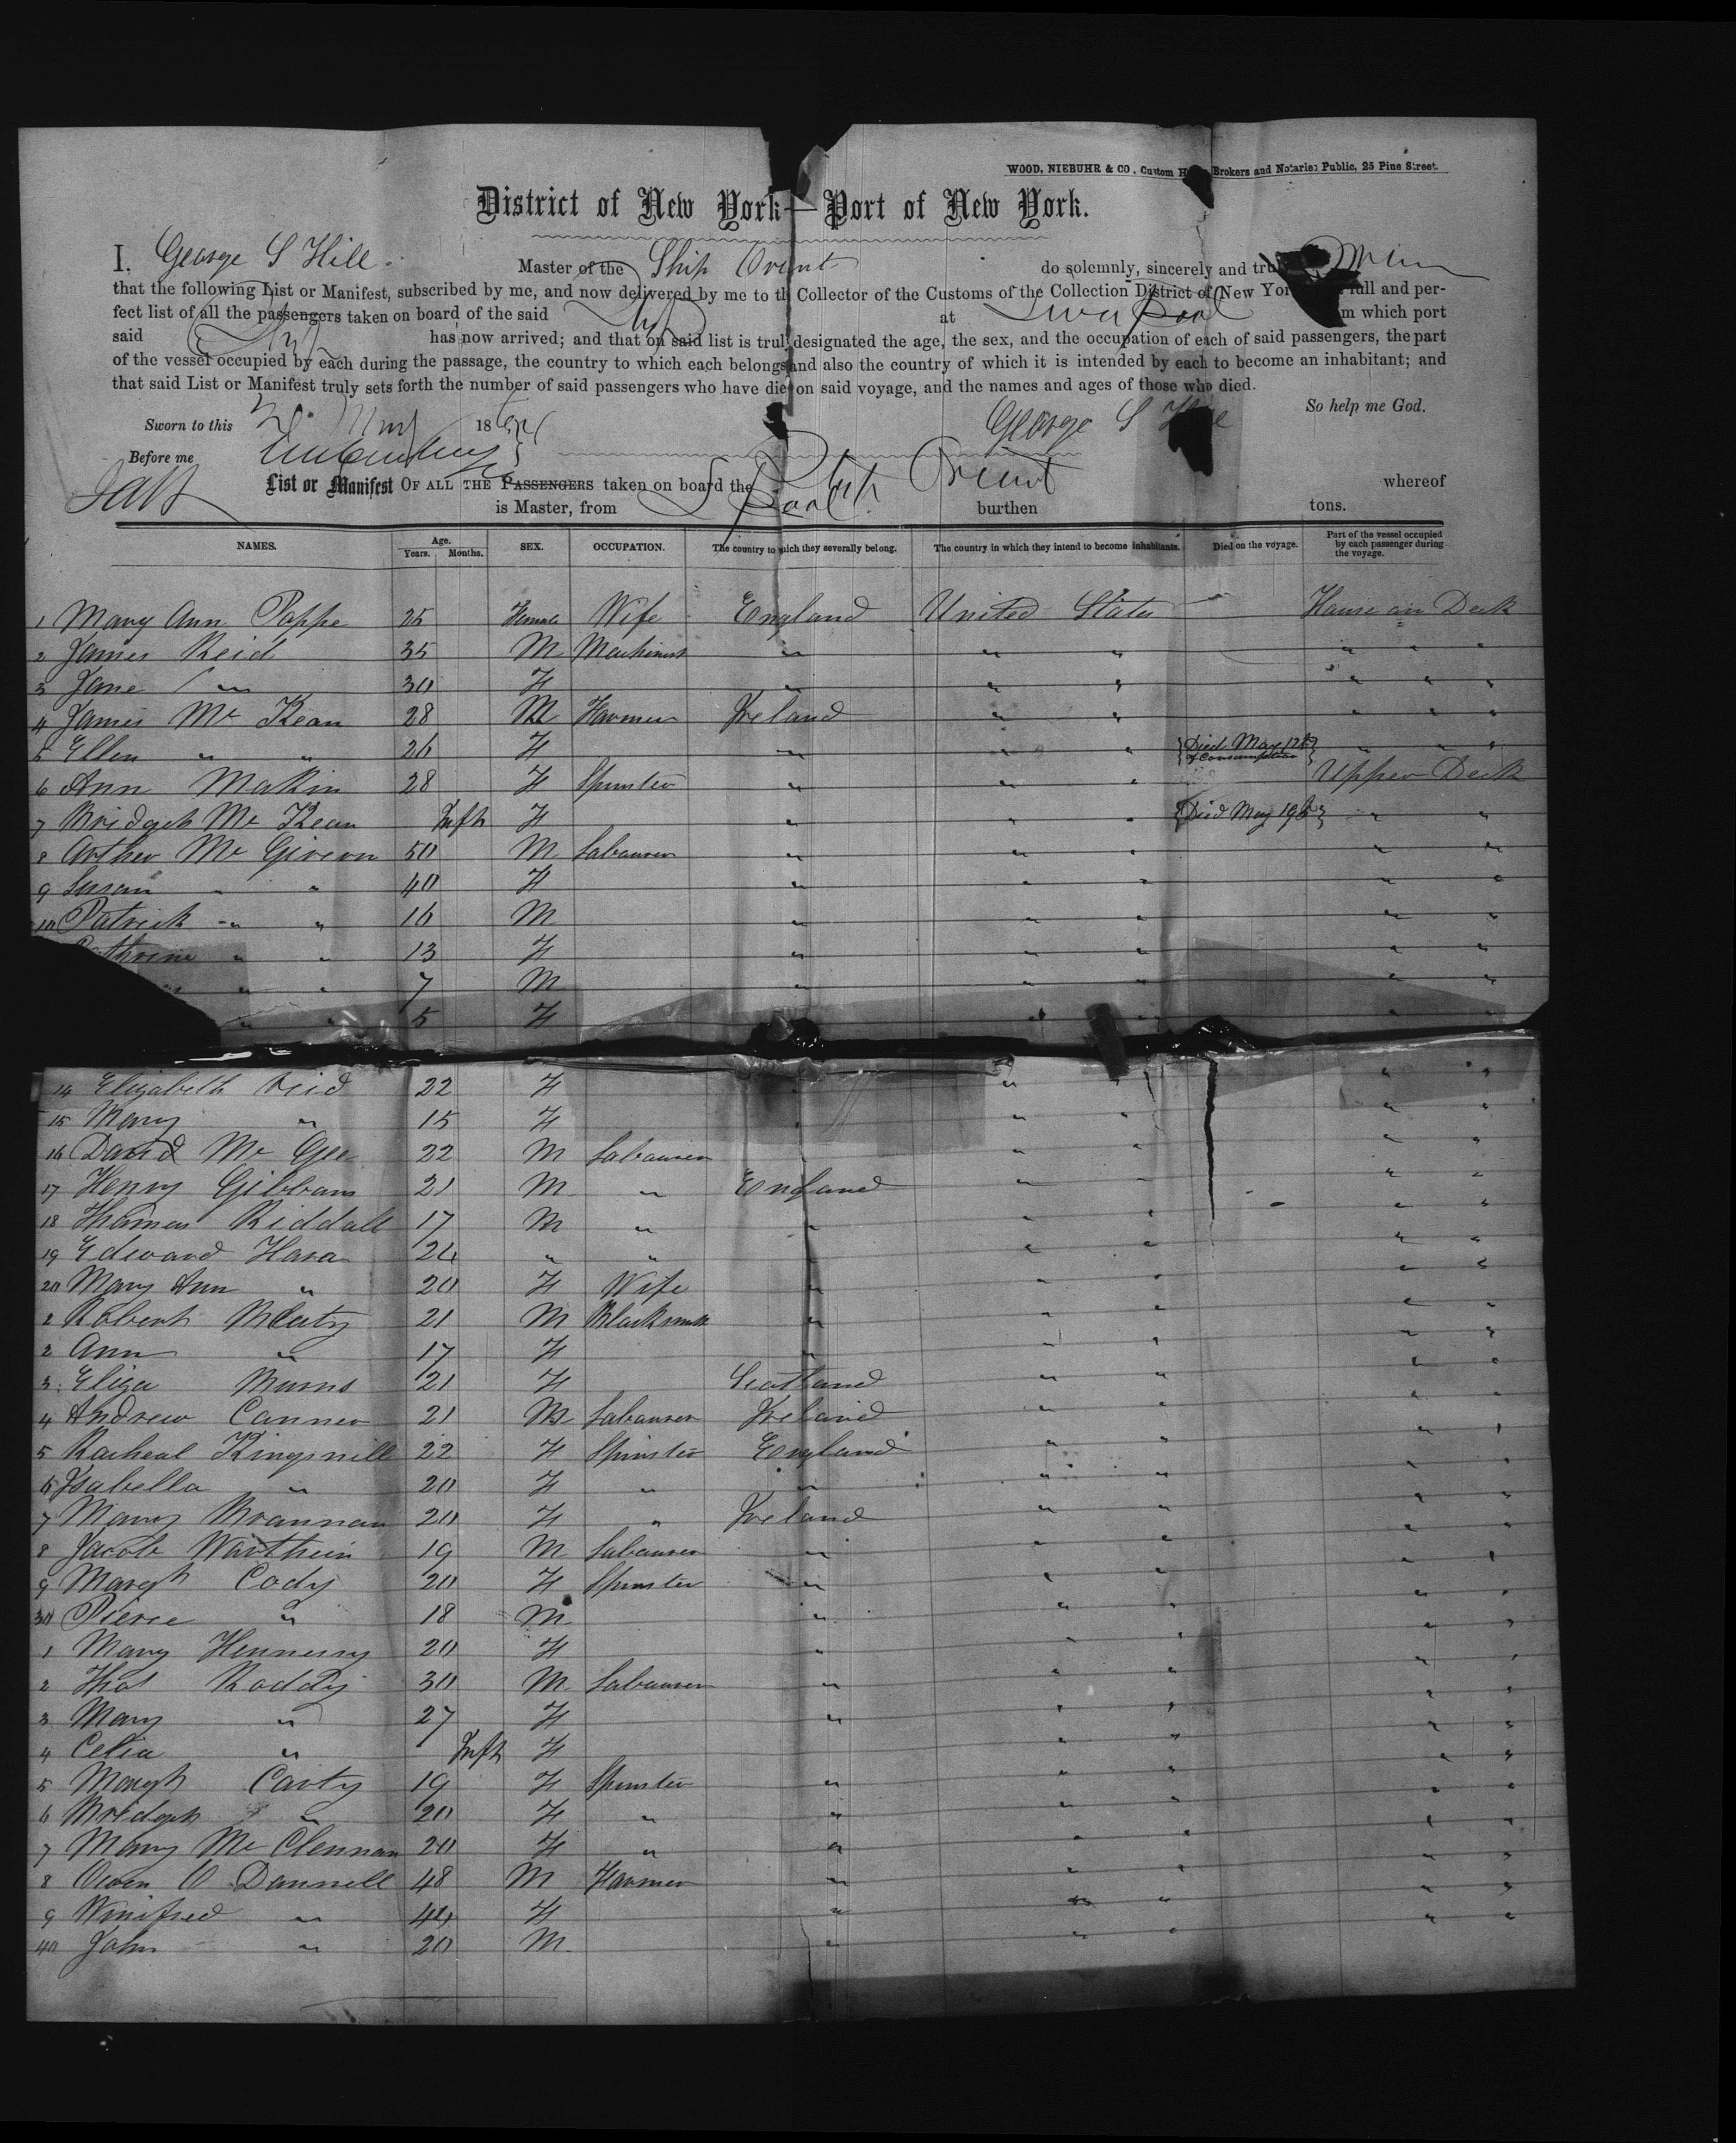 WOOD, NIEBUHR & CO, Custom H Brokers and Notaries Public, 25 Pine Street.
District of New York—Port of New York.
I, George S Hill Master of the Ship Orient do solemnly, sincerely and tru
that the following List or Manifest, subscribed by me, and now delivered by me to th Collector of the Customs of the Collection District of New Yor full and per-
fect list of all the passengers taken on board of the said Ship at Liverpool m which port
said Ship has now arrived; and that on said list is trul designated the age, the sex, and the occupation of each of said passengers, the part
of the vessel occupied by each during the passage, the country to which each belongs and also the country of which it is intended by each to become an inhabitant; and
that said List or Manifest truly sets forth the number of said passengers who have die on said voyage, and the names and ages of those who died.
So help me God.
Sworn to this May 186 George S Hill
Before me
List or Manifest OF ALL THE PASSENGERS taken on board the Ship Orient whereof
is Master, from L Pool burthen tons.
NAMES. Age. Years. Months. SEX. OCCUPATION. The country to which they severally belong. The country in which they intend to become inhabitants. Died on the voyage. Part of the vessel occupied by each passenger during the voyage.
1 Mary Ann Poppe 25 Female Wife England United States House on Deck
2 James Reid 35 M Machinist " " " " " "
3 Jane " 30 F " " " " " "
4 James Mc Kean 28 M Farmer Ireland " " " " "
5 Ellen " " 26 F " " " Died May 12th of Consumption " " "
6 Ann Makin 28 F Spinster " " " Upper Deck
7 Bridget Mc Kean Inft F " " " Died May 19th " "
8 Arther Mc Givern 50 M Labourer " " " " "
9 Susan " " 40 F " " " " "
10 Patrick " " 16 M " " " " "
Cathrine " " 13 F " " " " "
" " 7 M " " " " "
" " 5 F " " " "
14 Elizabeth Reid 22 F " " " " "
15 Mary " 15 F " " " " "
16 David Mc Gee 22 M Labourer " " " " "
17 Henry Gibbons 21 M " England " " " "
18 Thomas Riddall 17 M " " " " " "
19 Edward Hara 24 " " " " " " "
20 Mary Ann " 20 F Wife " " " " "
2 Robert McCarty 21 M Blacksmith " " " " "
2 Ann " 17 F " " " " "
3 Eliza Munns 21 F Scotland " " " "
4 Andrew Conner 21 M Labourer Ireland " " " "
5 Racheal Kingsmill 22 F Spinster England " " " "
6 Isabella " 20 F " " " " " "
7 Mary Brannan 20 F " Ireland " " " "
8 Jacob 19 M Labourer " " " " "
9 Margt Cody 20 F Spinster " " " " "
30 Pierce " 18 M " " " " "
1 Mary Hennessy 20 F " " " " "
2 Thos Roddy 30 M Labourer " " " " "
3 Mary " 27 F " " " " "
4 Celia " Inft F " " " "
5 Margt Carty 19 F Spinster " " " " "
6 Bridget " 20 F " " " " " "
7 Mary Mc Clennan 20 F " " " " " "
8 Owen O Donnell 48 M Farmer " " " " "
9 Winifred " 44 F " " " " "
40 John " 20 M " " " " "